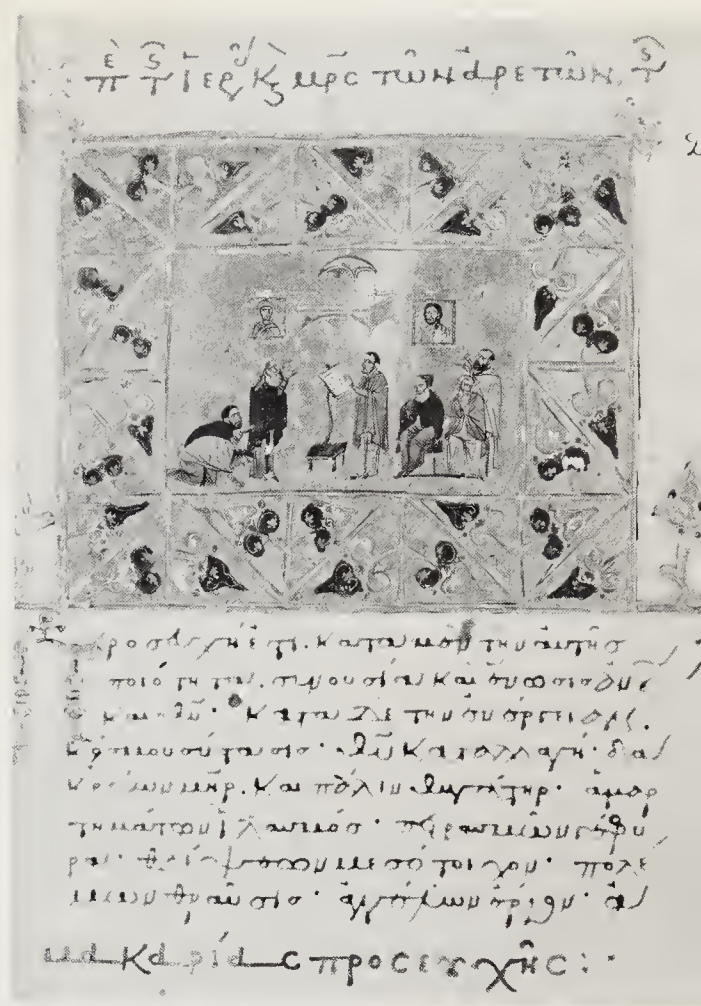 πε τς ϊερ κ μρς τῶν ἀρετῶν, τς
προσευχή ἐστι. κατα μὲν την αὐτῆς
ποιότητα. συνουσία καὶ ἕνωσις ἀνου
και θυ· κατα δὲ την ἐνέργειαν.
κόσμου σύστασις· θυ καταλλαγή· δα
κρύων μηρ. και πάλιν θυγάτηρ· ἁμαρ
τημάτων ϊλασμός· πειρασμῶν γέφυ
ρα· θλίψεων μεσότοιχον· πολέ
μων θραῦσις· ἀγγέλων ἔργον· ἁ
μακαρίας προσευχῆς:·